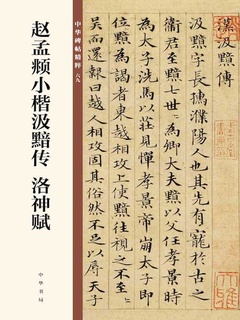 中华碑帖精粹 六九
赵孟頫小楷汲黯传 洛神赋
中华书局
漢汲黯傳
汲黯字長孺濮陽人也其先有寵於古之
衛君至黯七世〻為卿大夫黯以父任孝景時
為太子洗馬以莊見憚孝景帝崩太子即
位黯為謁者東越相攻上使黯往視之不至〻
吳而還報曰越人相攻固其俗然不足以辱天子